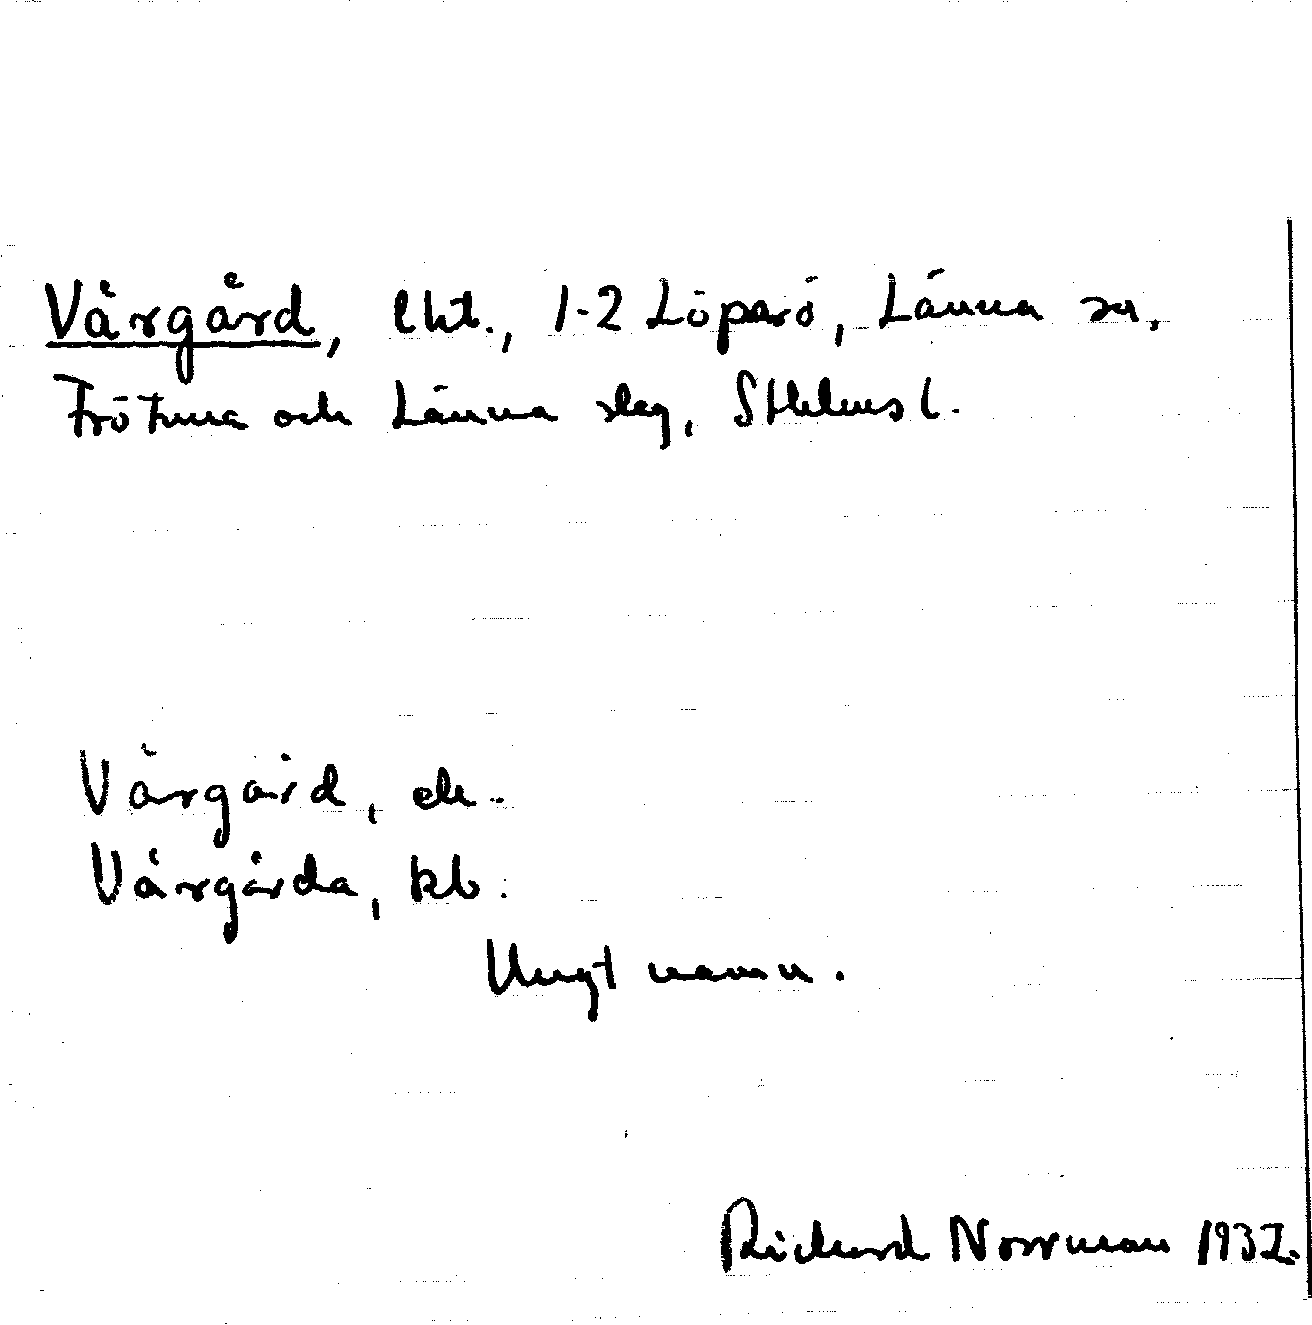 Vårgård, lht., 1-2 Löparö, Länna sn,
Frötuna och Länna slag, Sthlms l.
Vårgård, ek.
Vårgårda, kb.
Ungt namn.
Richard Norrman 1932.